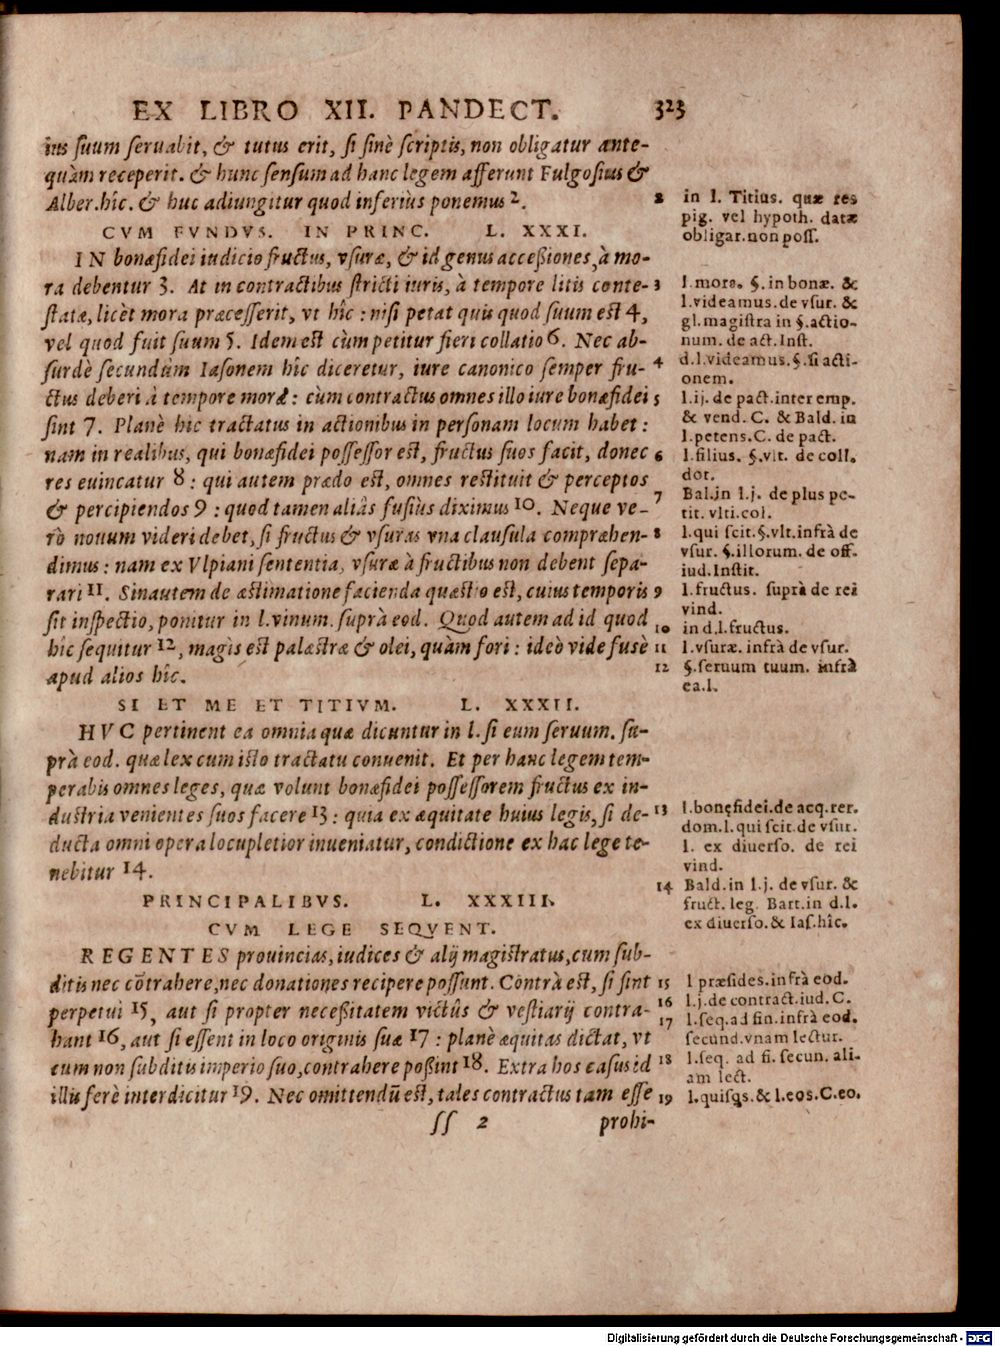 EX LIBRO XII. PANDECT. 323
ius suum seruabit, & tutus erit, si sinè scriptis, non obligatur ante-
quàm receperit. & hunc sensum ad hanc legem afferunt Fulgosius &
Alber. hîc. & huc adiungitur quod inferius ponemus 2.
CVM FVNDVS. IN PRINC. L. XXXI.
IN bonæfidei iudicio fructus, vsuræ, & id genus accessiones, à mo-
ra debentur 3. At in contractibus stricti iuris, à tempore litis conte-
statæ, licèt mora præcesserit, vt hîc: nisi petat quis quod suum est 4,
vel quod fuit suum 5. Idem est cùm petitur fieri collatio 6. Nec ab-
surdè secundùm Iasonem hîc diceretur, iure canonico semper fru-
ctus deberi à tempore moræ: cùm contractus omnes illo iure bonæfidei
sint 7. Planè hic tractatus in actionibus in personam locum habet:
nam in realibus, qui bonæfidei possessor est, fructus suos facit, donec
res euincatur 8: qui autem prædo est, omnes restituit & perceptos
& percipiendos 9: quod tamen aliâs fusiùs diximus 10. Neque ve-
rò nouum videri debet, si fructus & vsuras vna clausula compræhen-
dimus: nam ex Vlpiani sententia, vsuræ à fructibus non debent sepa-
rari 11. Sin autem de æstimatione facienda quæstio est, cuius temporis
sit inspectio, ponitur in l. vinum. suprà eod. Quod autem ad id quod
hîc sequitur 12, magis est palæstræ & olei, quàm fori: ideò vide fusè
apud alios hîc.
SI ET ME ET TITIVM. L. XXXII.
HVC pertinent ea omnia quæ dicuntur in l. si eum seruum. su-
prà eod. quæ lex cum isto tractatu conuenit. Et per hanc legem tem-
perabis omnes leges, quæ volunt bonæfidei possessorem fructus ex in-
dustria venientes suos facere 13: quia ex æquitate huius legis, si de-
ducta omni opera locupletior inueniatur, condictione ex hac lege te-
nebitur 14.
PRINCIPALIBVS. L. XXXIII.
CVM LEGE SEQVENT.
REGENTES prouincias, iudices & alij magistratus, cum sub-
ditis nec cōtrahere, nec donationes recipere possunt. Contrà est, si sint
perpetui 15, aut si propter necessitatem victûs & vestiarij contra-
hant 16, aut si essent in loco originis suæ 17: planè æquitas dictat, vt
cum non subditis imperio suo, contrahere possint 18. Extra hos casus id
illis ferè interdicitur 19. Nec omittendū est, tales contractus tam esse
ſſ 2 prohi-
2 in l. Titius. quæ res
pig. vel hypoth. datæ
obligar. non poss.
3 l. mora. §. in bonæ. &
l. videamus. de vsur. &
gl. magistra in §. actio-
num. de act. Inst.
4 d. l. videamus. §. si acti-
onem.
5 l. ij. de pact. inter emp.
& vend. C. & Bald. in
l. petens. C. de pact.
6 l. filius. §. vlt. de coll.
dot.
7 Bal. in l. j. de plus pe-
tit. vlti. col.
8 l. qui scit. §. vlt. infrà de
vsur. §. illorum. de off.
iud. Instit.
9 l. fructus. suprà de rei
vind.
10 in d. l. fructus.
11 l. vsuræ. infrà de vsur.
12 §. seruum tuum. infrà
ea. l.
13 l. bonęfidei. de acq. rer.
dom. l. qui scit. de vsur.
l. ex diuerso. de rei
vind.
14 Bald. in l. j. de vsur. &
fruct. leg. Bart. in d. l.
ex diuerso. & Ias. hîc.
15 l præsides. infrà eod.
16 l. j. de contract. iud. C.
17 l. seq. ad fin. infrà eod.
secund. vnam lectur.
18 l. seq. ad fi. secun. ali-
am lect.
19 l. quisqs. & l. eos. C. eo.
Digitalisierung gefördert durch die Deutsche Forschungsgemeinschaft - DFG